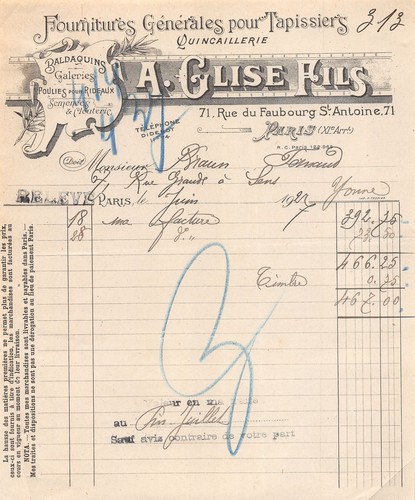 Fournitures Générales pour Tapissiers
313
Quincaillerie
Baldaquins
Galeries
Poulies pour Rideaux
A. Glise Fils
71, Rue du Faubourg St Antoine, 71
Téléphone
Diderot
Paris (XIe Arrt)
R. C. Paris
Doit Monsieur Braun
7 Rue Grande à Sens
Yonne
RELEVÉ
Paris, le Juin 1927
18 ma facture 392.75
28 do 73.50
466.25
Timbre 0.75
467.00
Valeur en ma traite
au Fin Juillet
Sauf avis contraire de votre part
La hausse des matières premières ne permet plus de garantir les prix,
ceux-ci sont fournis à titre d'indication, les marchandises sont facturées au
cours en vigueur au moment de leur livraison.
NOTA. — Toutes mes marchandises sont livrables et payables dans Paris. —
Mes traites et dispositions ne sont pas une dérogation au lieu de paiement Paris.